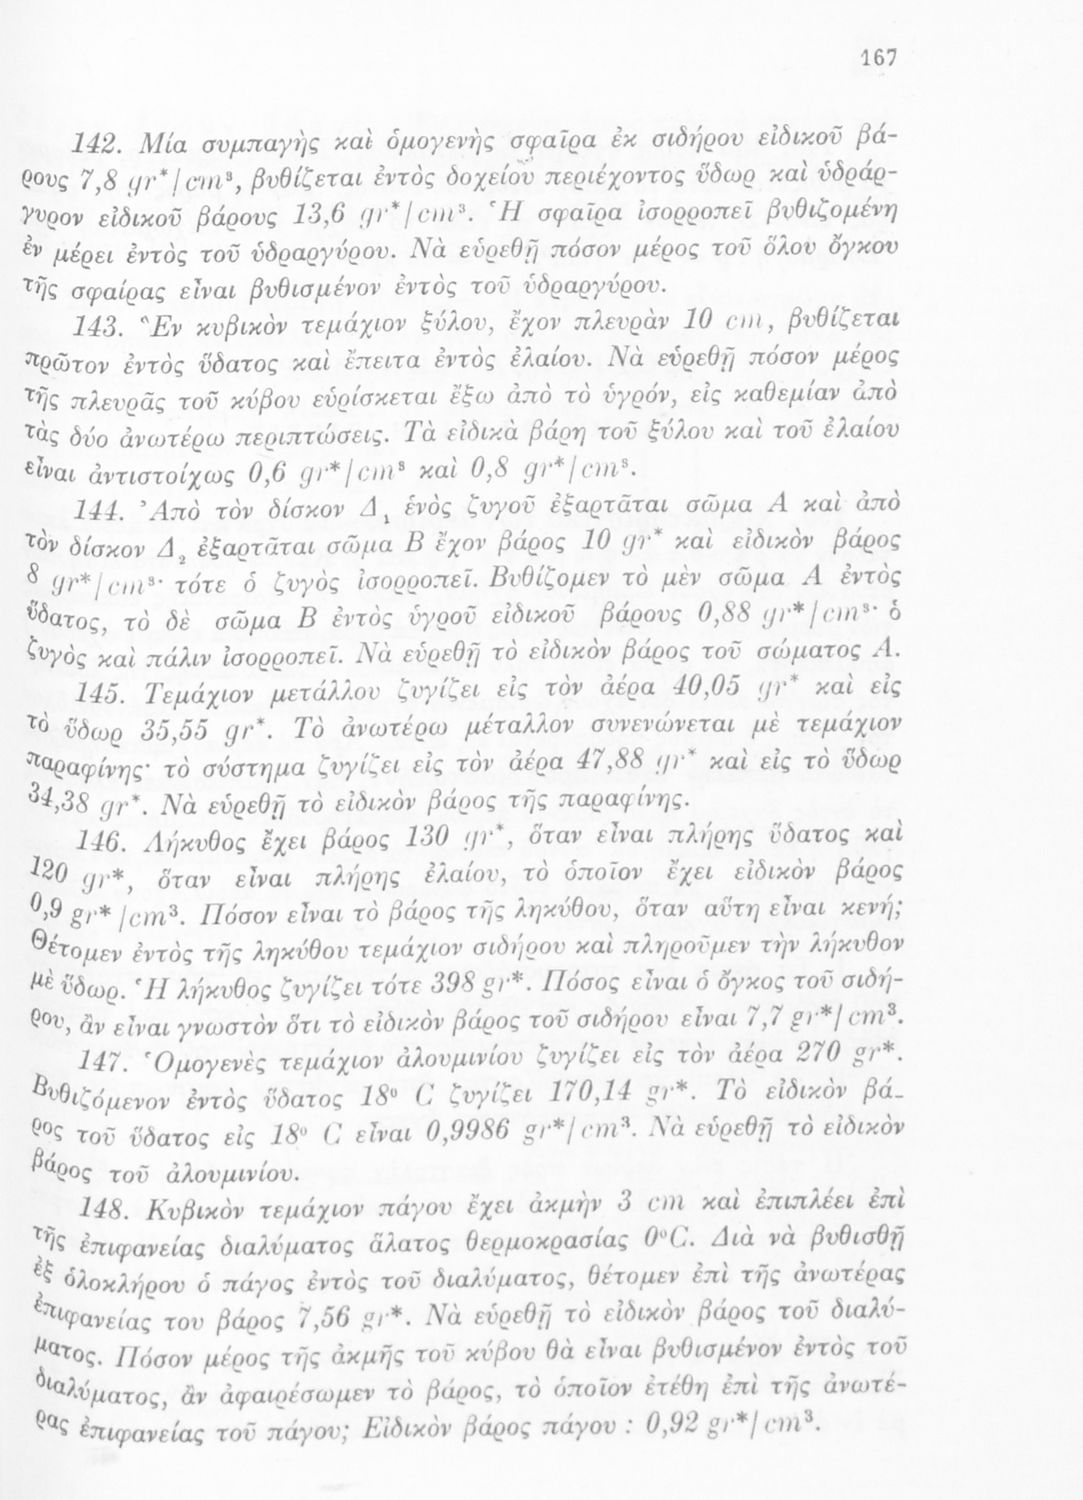 167
142. Μία συμπαγὴς καὶ ὁμογενὴς σφαῖρα ἐκ σιδήρου εἰδικοῦ βά-
ρους 7,8 gr*/cm³, βυθίζεται ἐντὸς δοχείου περιέχοντος ὕδωρ καὶ ὑδράρ-
γυρον εἰδικοῦ βάρους 13,6 gr*/cm³. Ἡ σφαῖρα ἰσορροπεῖ βυθιζομένη
ἐν μέρει ἐντὸς τοῦ ὑδραργύρου. Νὰ εὑρεθῇ πόσον μέρος τοῦ ὅλου ὄγκου
τῆς σφαίρας εἶναι βυθισμένον ἐντὸς τοῦ ὑδραργύρου.
143. Ἓν κυβικὸν τεμάχιον ξύλου, ἔχον πλευρὰν 10 cm, βυθίζεται
πρῶτον ἐντὸς ὕδατος καὶ ἔπειτα ἐντὸς ἐλαίου. Νὰ εὑρεθῇ πόσον μέρος
τῆς πλευρᾶς τοῦ κύβου εὑρίσκεται ἔξω ἀπὸ τὸ ὑγρόν, εἰς καθεμίαν ἀπὸ
τὰς δύο ἀνωτέρω περιπτώσεις. Τὰ εἰδικὰ βάρη τοῦ ξύλου καὶ τοῦ ἐλαίου
εἶναι ἀντιστοίχως 0,6 gr*/cm³ καὶ 0,8 gr*/cm³.
144. Ἀπὸ τὸν δίσκον Δ₁ ἑνὸς ζυγοῦ ἐξαρτᾶται σῶμα Α καὶ ἀπὸ
τὸν δίσκον Δ₂ ἐξαρτᾶται σῶμα Β ἔχον βάρος 10 gr* καὶ εἰδικὸν βάρος
8 gr*/cm³· τότε ὁ ζυγὸς ἰσορροπεῖ. Βυθίζομεν τὸ μὲν σῶμα Α ἐντὸς
ὕδατος, τὸ δὲ σῶμα Β ἐντὸς ὑγροῦ εἰδικοῦ βάρους 0,88 gr*/cm³· ὁ
ζυγὸς καὶ πάλιν ἰσορροπεῖ. Νὰ εὑρεθῇ τὸ εἰδικὸν βάρος τοῦ σώματος Α.
145. Τεμάχιον μετάλλου ζυγίζει εἰς τὸν ἀέρα 40,05 gr* καὶ εἰς
τὸ ὕδωρ 35,55 gr*. Τὸ ἀνωτέρω μέταλλον συνενώνεται μὲ τεμάχιον
παραφίνης· τὸ σύστημα ζυγίζει εἰς τὸν ἀέρα 47,88 gr* καὶ εἰς τὸ ὕδωρ
34,38 gr*. Νὰ εὑρεθῇ τὸ εἰδικὸν βάρος τῆς παραφίνης.
146. Λήκυθος ἔχει βάρος 130 gr*, ὅταν εἶναι πλήρης ὕδατος καὶ
120 gr*, ὅταν εἶναι πλήρης ἐλαίου, τὸ ὁποῖον ἔχει εἰδικὸν βάρος
0,9 gr*/cm³. Πόσον εἶναι τὸ βάρος τῆς ληκύθου, ὅταν αὕτη εἶναι κενή;
Θέτομεν ἐντὸς τῆς ληκύθου τεμάχιον σιδήρου καὶ πληροῦμεν τὴν λήκυθον
μὲ ὕδωρ. Ἡ λήκυθος ζυγίζει τότε 398 gr*. Πόσος εἶναι ὁ ὄγκος τοῦ σιδή-
ρου, ἂν εἶναι γνωστὸν ὅτι τὸ εἰδικὸν βάρος τοῦ σιδήρου εἶναι 7,7 gr*/cm³.
147. Ὁμογενὲς τεμάχιον ἀλουμινίου ζυγίζει εἰς τὸν ἀέρα 270 gr*.
Βυθιζόμενον ἐντὸς ὕδατος 18⁰ C ζυγίζει 170,14 gr*. Τὸ εἰδικὸν βά-
ρος τοῦ ὕδατος εἰς 18⁰ C εἶναι 0,9986 gr*/cm³. Νὰ εὑρεθῇ τὸ εἰδικὸν
βάρος τοῦ ἀλουμινίου.
148. Κυβικὸν τεμάχιον πάγου ἔχει ἀκμὴν 3 cm καὶ ἐπιπλέει ἐπὶ
τῆς ἐπιφανείας διαλύματος ἅλατος θερμοκρασίας 0⁰C. Διὰ νὰ βυθισθῇ
ἐξ ὁλοκλήρου ὁ πάγος ἐντὸς τοῦ διαλύματος, θέτομεν ἐπὶ τῆς ἀνωτέρας
ἐπιφανείας του βάρος 7,56 gr*. Νὰ εὑρεθῇ τὸ εἰδικὸν βάρος τοῦ διαλύ-
ματος. Πόσον μέρος τῆς ἀκμῆς τοῦ κύβου θὰ εἶναι βυθισμένον ἐντὸς τοῦ
διαλύματος, ἂν ἀφαιρέσωμεν τὸ βάρος, τὸ ὁποῖον ἐτέθη ἐπὶ τῆς ἀνωτέ-
ρας ἐπιφανείας τοῦ πάγου; Εἰδικὸν βάρος πάγου : 0,92 gr*/cm³.